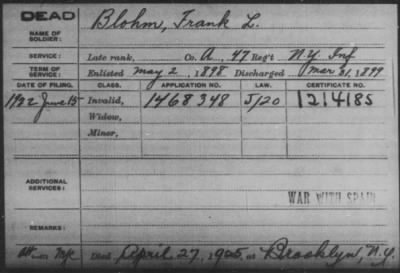 DEAD
NAME OF SOLDIER: Blohm, Frank L.
SERVICE: Late rank, Co. A, 47 Reg't N.Y. Inf
TERM OF SERVICE: Enlisted May 2, 1898 Discharged Mar 31, 1899
DATE OF FILING. CLASS. APPLICATION NO. LAW. CERTIFICATE NO.
1922 June 15 Invalid, 1468348 5/20 1214185
Widow,
Minor,
ADDITIONAL SERVICES:
WAR WITH SPAIN
REMARKS:
Died April 27, 1925 at Brooklyn, N.Y.